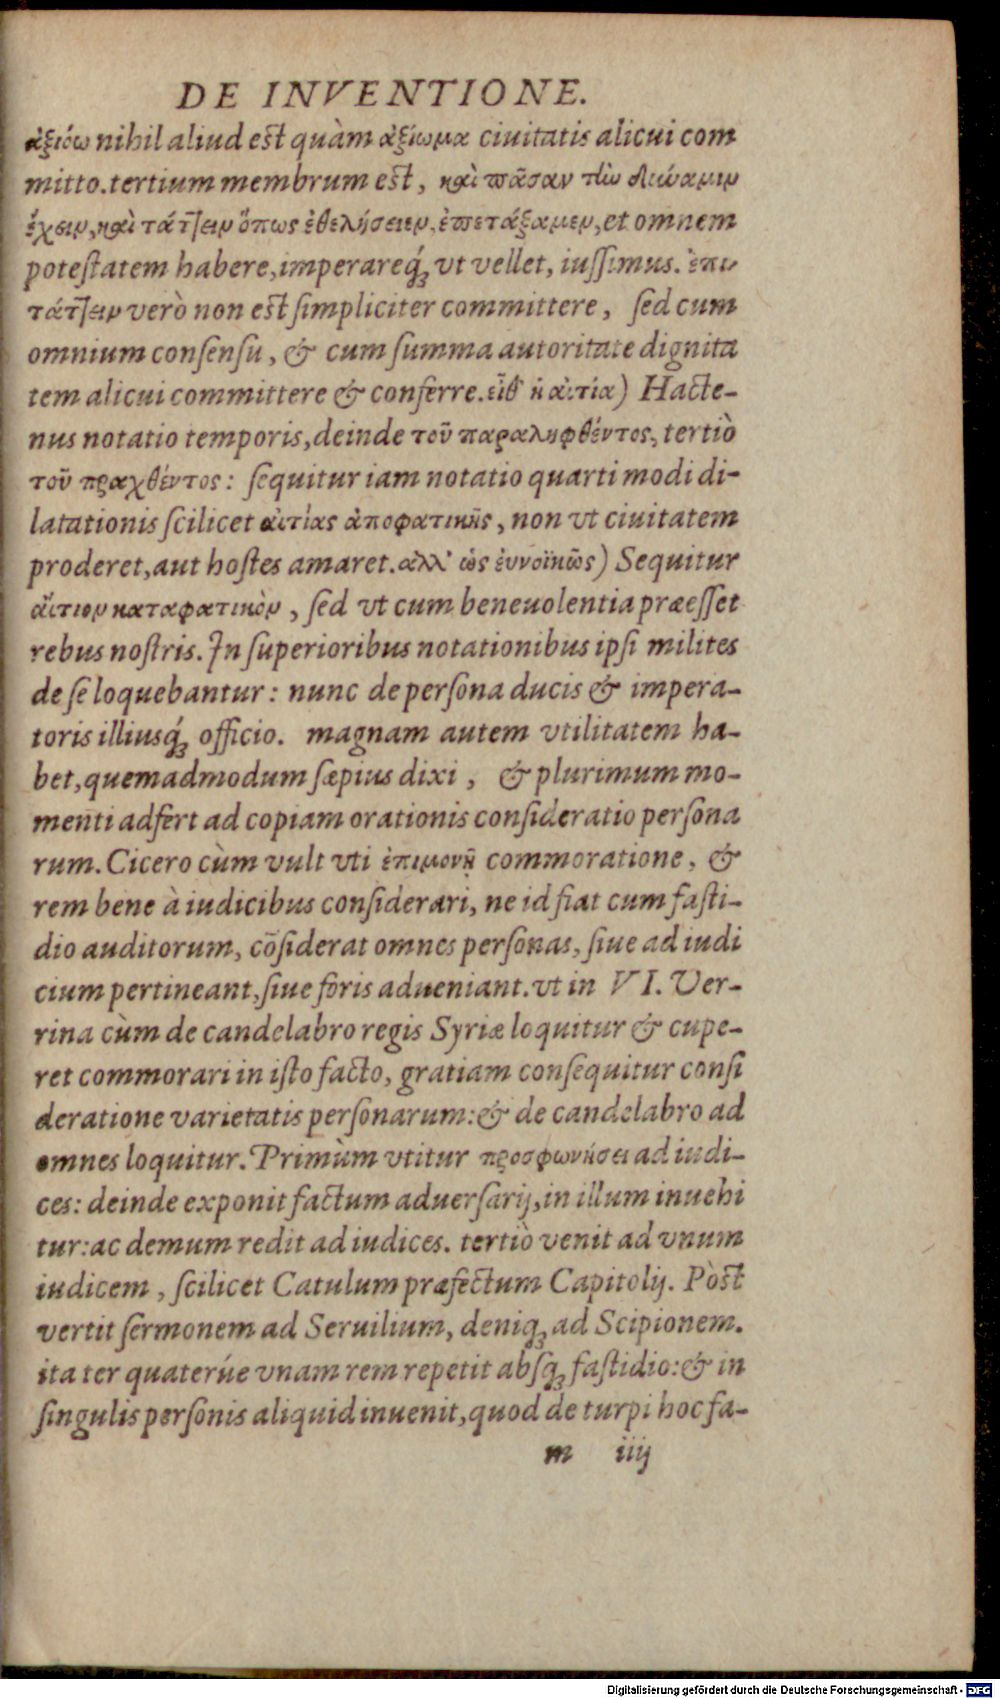 DE INVENTIONE.
ἀξιόω nihil aliud est quàm ἀξίωμα ciuitatis alicui com
mitto. tertium membrum est, καὶ πᾶσαν τὴν δύναμιν
ἔχειν, καὶ τάττειν ὅπως ἐθελήσειεν, ἐπετάξαμεν, et omnem
potestatem habere, imperareq́ꝫ vt vellet, iußimus. ἐπι
τάττειν verò non est simpliciter committere, sed cum
omnium consensu, & cum summa autoritate dignita
tem alicui committere & conferre. εἶθ' ἡ αἰτία) Hacte-
nus notatio temporis, deinde τοῦ παραληφθέντος, tertiò
τοῦ πραχθέντος: sequitur iam notatio quarti modi di-
latationis scilicet αἰτίας ἀποφατικῆς, non vt ciuitatem
proderet, aut hostes amaret. ἀλλ' ὡς ἐυνοϊκῶς) Sequitur
αἴτιον καταφατικὸν, sed vt cum beneuolentia præesset
rebus nostris. In superioribus notationibus ipsi milites
de se loquebantur: nunc de persona ducis & impera-
toris illiusq́ꝫ officio. magnam autem vtilitatem ha-
bet, quemadmodum sæpius dixi, & plurimum mo-
menti adfert ad copiam orationis consideratio persona
rum. Cicero cùm vult vti ἐπιμονῇ commoratione, &
rem bene à iudicibus considerari, ne id fiat cum fasti-
dio auditorum, cõsiderat omnes personas, siue ad iudi
cium pertineant, siue foris adueniant. vt in VI. Ver-
rina cùm de candelabro regis Syriæ loquitur & cupe-
ret commorari in isto facto, gratiam consequitur consi
deratione varietatis personarum: & de candelabro ad
omnes loquitur. Primùm vtitur προσφωνήσει ad iudi-
ces: deinde exponit factum aduersarij, in illum inuehi
tur: ac demum redit ad iudices. tertiò venit ad vnum
iudicem, scilicet Catulum præfectum Capitolij. Pòst
vertit sermonem ad Seruilium, deniqꝫ ad Scipionem.
ita ter quaterúe vnam rem repetit absqꝫ fastidio: & in
singulis personis aliquid inuenit, quod de turpi hoc fa-
m iiij
Digitalisierung gefördert durch die Deutsche Forschungsgemeinschaft - DFG